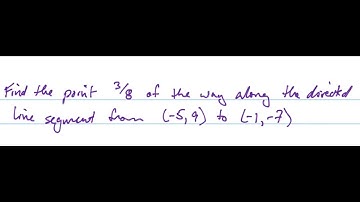 Find the point 3/8 of the way along the directed
line segment from (-5,9) to (-1,-7)